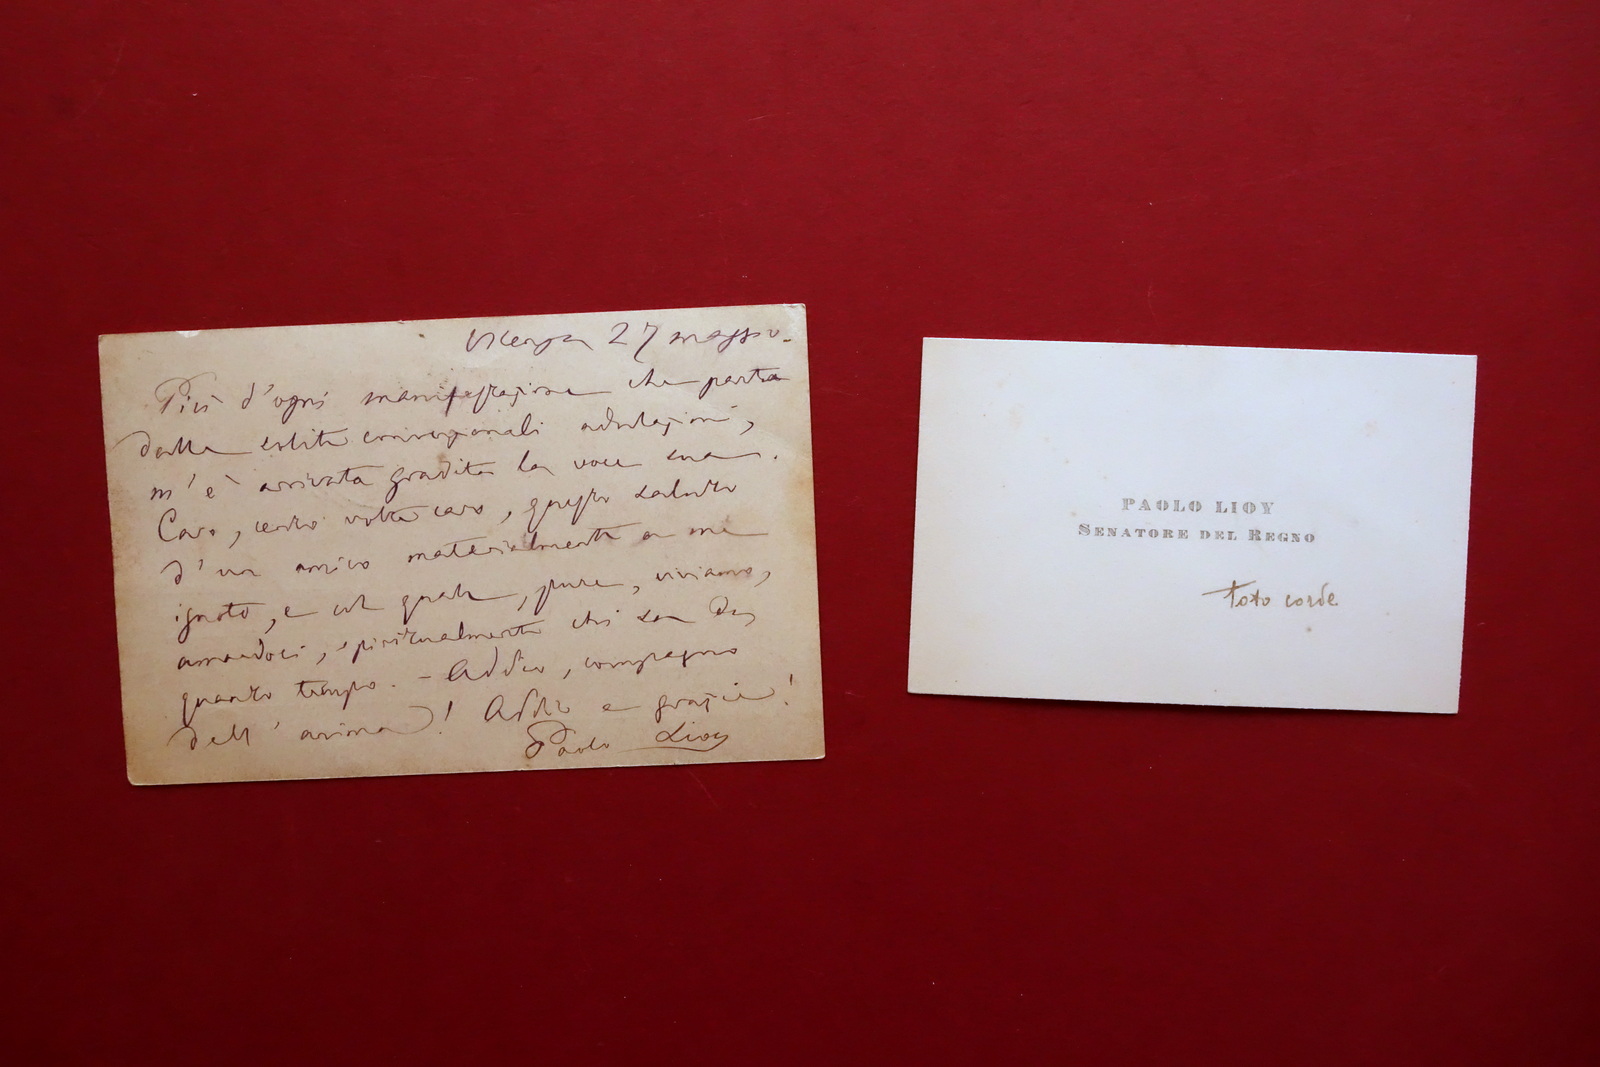 Vicenza 27 maggio.
Più d'ogni manifestazione che parta
dalle solite convenzionali adulazioni,
m'è arrivata gradita la voce sua.
Caro, cento volte caro, questo saluto
d'un amico materialmente a me
ignoto, e col quale, pure, viviamo,
amandoci, spiritualmente chi sa da
quanto tempo. - Addio, compagno
dell'anima! Addio e grazie!
Paolo Lioy
PAOLO LIOY
SENATORE DEL REGNO
toto corde